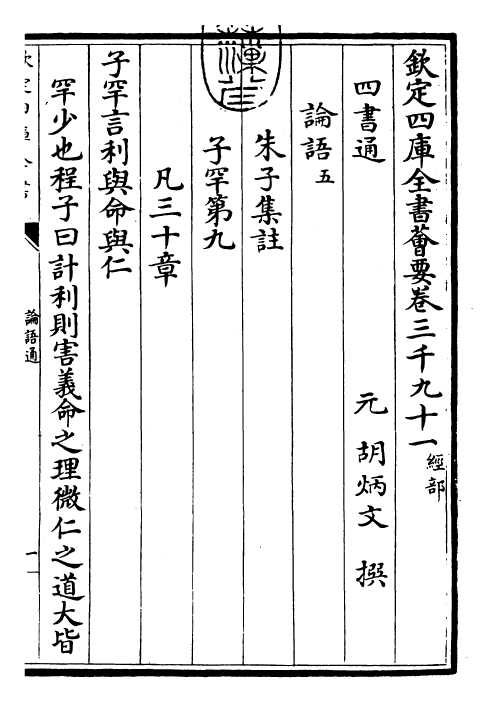 欽定四庫全書薈要卷三千九十一 經部
四書通 元 胡炳文 撰
論語五
朱子集註
子罕第九
凡三十章
子罕言利與命與仁
罕少也程子曰計利則害義命之理微仁之道大皆
論語通 一